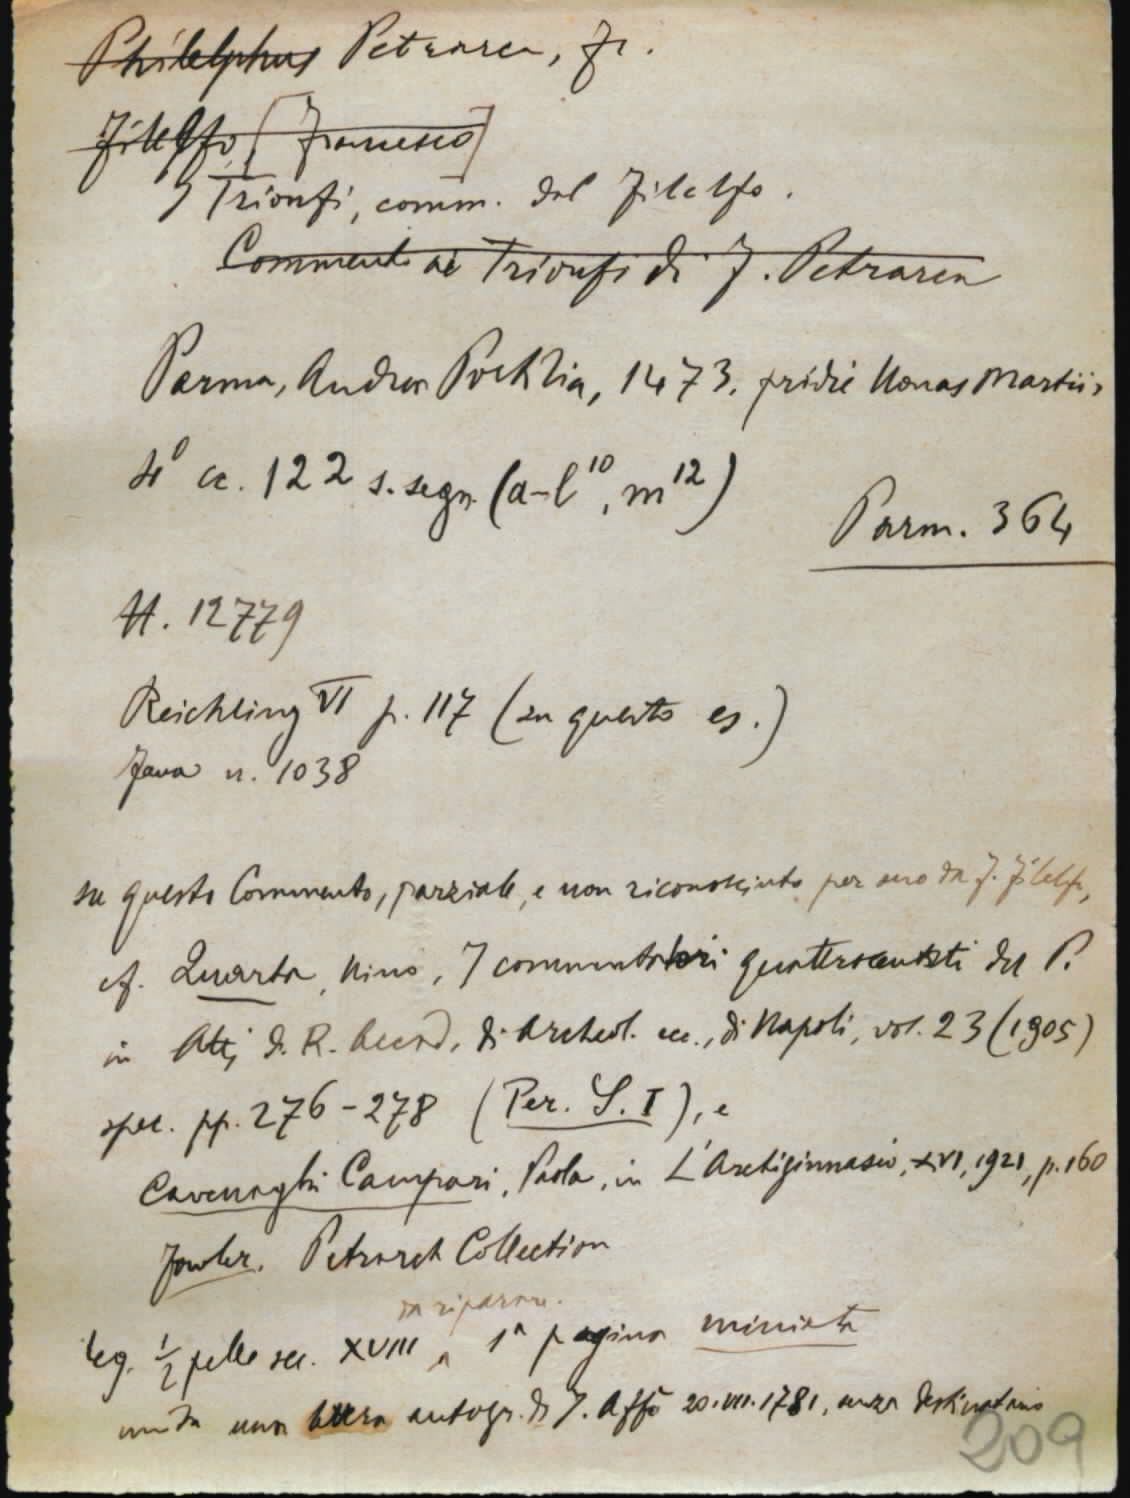 Philelphus Petrarca, Fr.
Filelfo [Francesco]
I Trionfi, comm. dal Filelfo.
Commento ai Trionfi di F. Petrarca
Parma, Andrea Portilia, 1473. pridie Nonas Martii,
4° cc. 122 s. segn. (a-l¹⁰, m¹²)
Parm. 364
H. 12779
Reichling VI p. 117 (su questo es.)
Fava n. 1038
su questo Commento, parziale, e non riconosciuto per suo da F. Filelfo,
cf. Quarta, Nino, I commentatori quattrocentisti del P.
in Atti d. R. Accad. di Archeol. ecc., di Napoli, vol. 23 (1905)
spec. pp. 276-278 (Per. S. I), e
Cavenaghi Campari, Paola, in L'Archiginnasio, XVI, 1921, p. 160
Fowler. Petrarch Collection
da riparare.
leg. ½ pelle sec. XVIII ^ 1ª pagina miniata
unita una lettera autogr. di I. Affò 20.VII.1781, senza destinatario
209